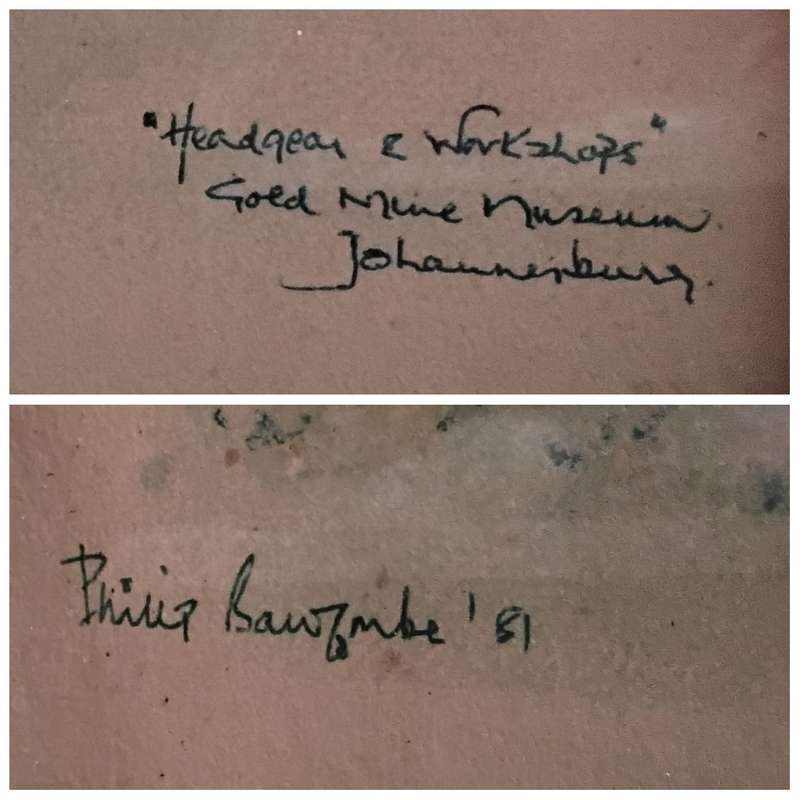 "Headgear & Workshops"
Gold Mine Museum.
Johannesburg.
Philip Bawcombe '81